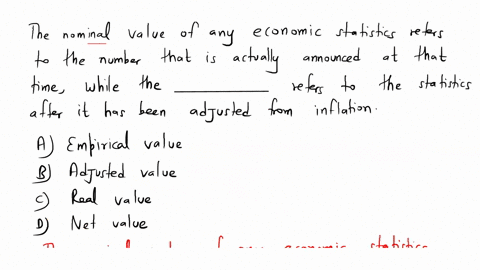 The nominal value of any economic statistics refers
to the number that is actually announced at that
time, while the ____________ refers to the statistics
after it has been adjusted from inflation.
A) Empirical value
B) Adjusted value
C) Real value
D) Net value
of any economic statistics